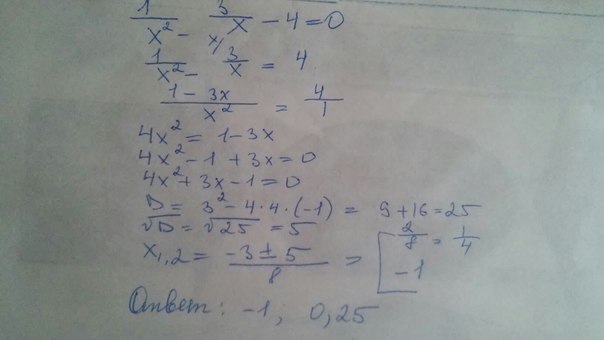 1/x² - 3/x - 4 = 0
1/x² - 3/x = 4
(1 - 3x)/x² = 4/1
4x² = 1 - 3x
4x² - 1 + 3x = 0
4x² + 3x - 1 = 0
D = 3² - 4·4·(-1) = 9 + 16 = 25
√D = √25 = 5
x₁,₂ = (-3 ± 5)/8 = [ 2/8 = 1/4
-1
Ответ: -1; 0,25